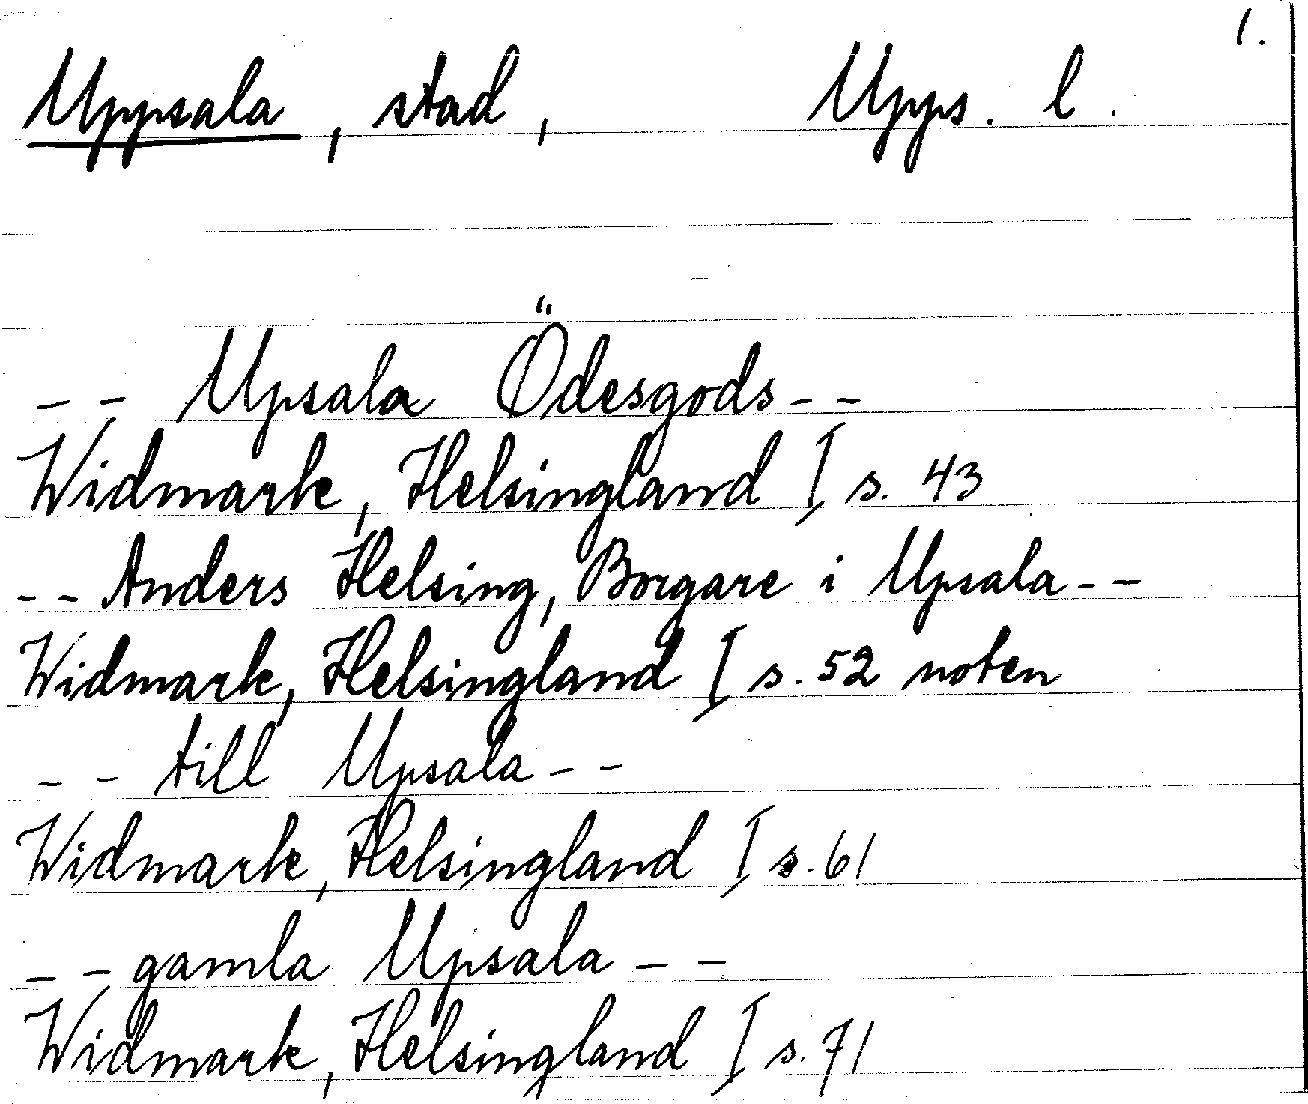 1.
Uppsala, stad, Upps. l.
-- Upsala Ödesgods --
Widmark, Helsingland I s. 43
-- Anders Helsing, Borgare i Upsala --
Widmark, Helsingland I s. 52 noten
-- till Upsala --
Widmark, Helsingland I s. 61
-- gamla Upsala --
Widmark, Helsingland I s. 71